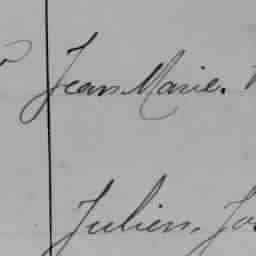 Jean Marie.
Julien, Jos